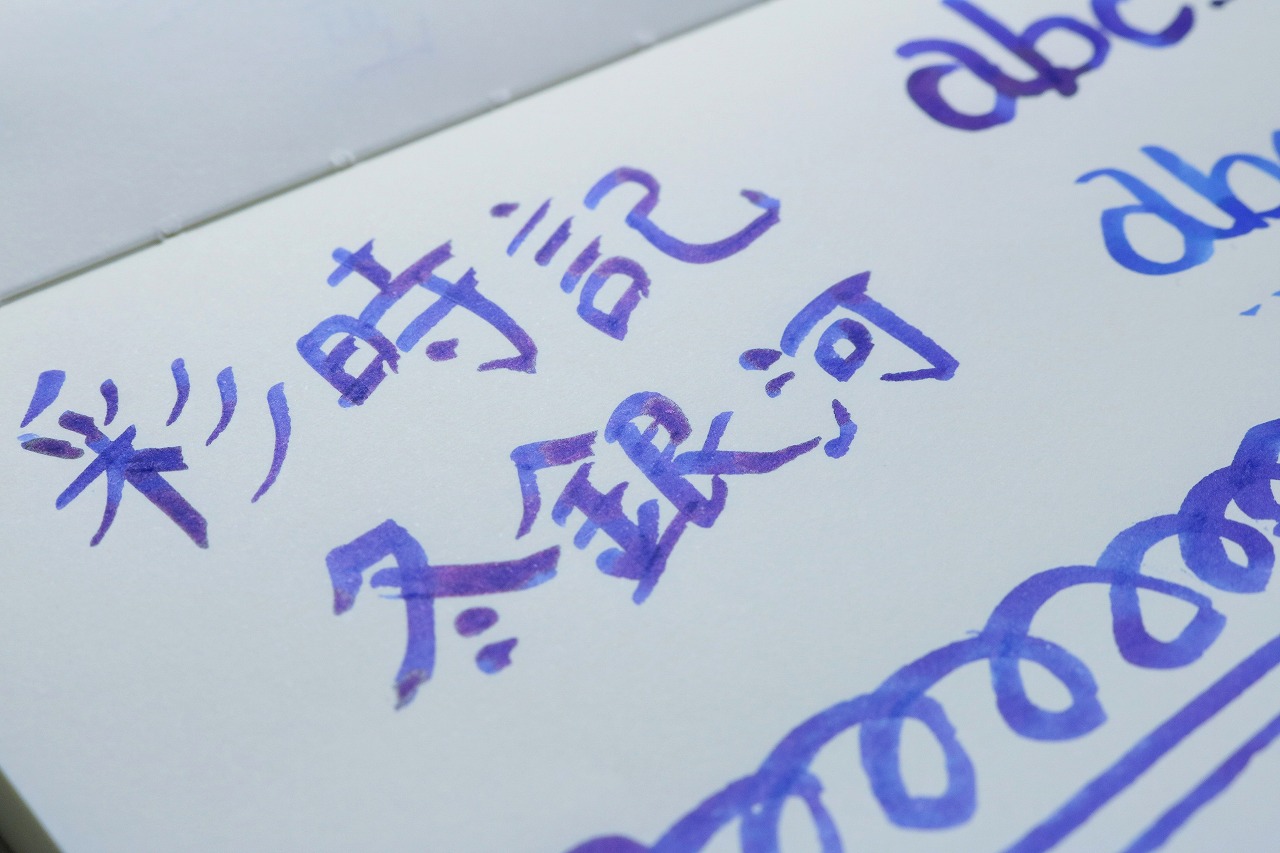 彩時記
冬銀河
abc
ab